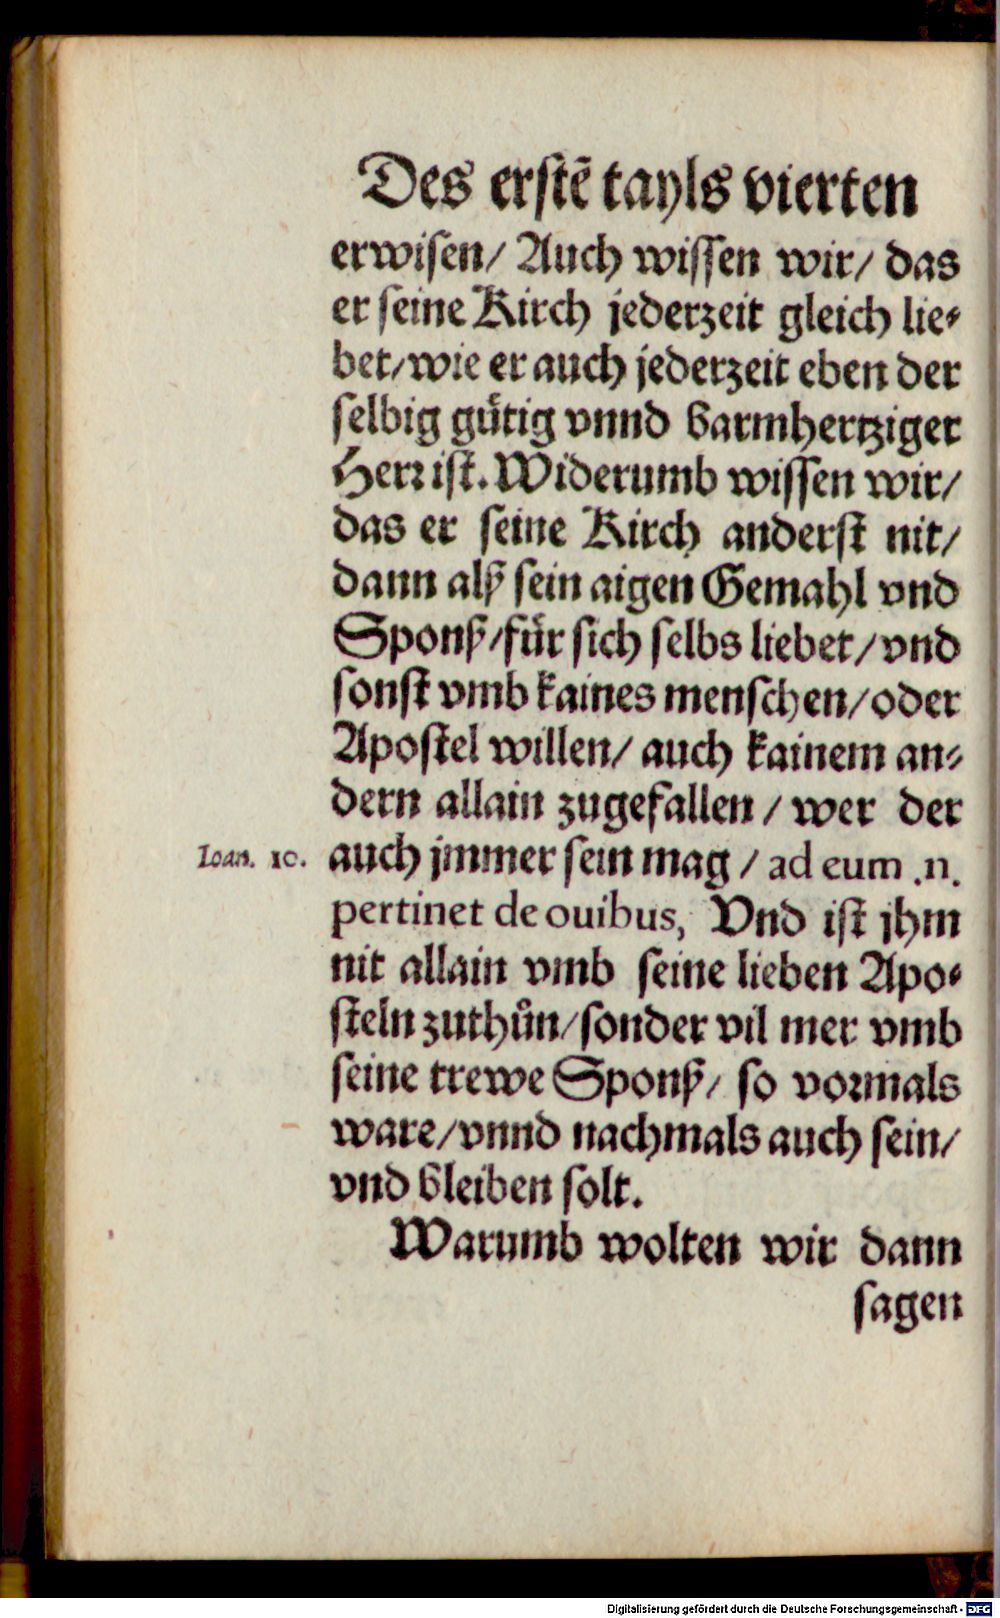 Des erstẽ tayls vierten
erwisen/ Auch wissen wir/ das
er seine Kirch jederzeit gleich lie-
bet/ wie er auch jederzeit eben der
selbig gůtig vnnd barmhertziger
Herr ist. Widerumb wissen wir/
das er seine Kirch anderst nit/
dann alß sein aigen Gemahl vnd
Sponß/ fůr sich selbs liebet/ vnd
sonst vmb kaines menschen/ oder
Apostel willen/ auch kainem an-
dern allain zugefallen / wer der
Ioan. 10. auch jmmer sein mag / ad eum .n.
pertinet de ouibus, Vnd ist jhm
nit allain vmb seine lieben Apo-
steln zuthůn/ sonder vil mer vmb
seine trewe Sponß/ so vormals
ware/ vnnd nachmals auch sein/
vnd bleiben solt.
Warumb wolten wir dann
sagen
Digitalisierung gefördert durch die Deutsche Forschungsgemeinschaft - DFG